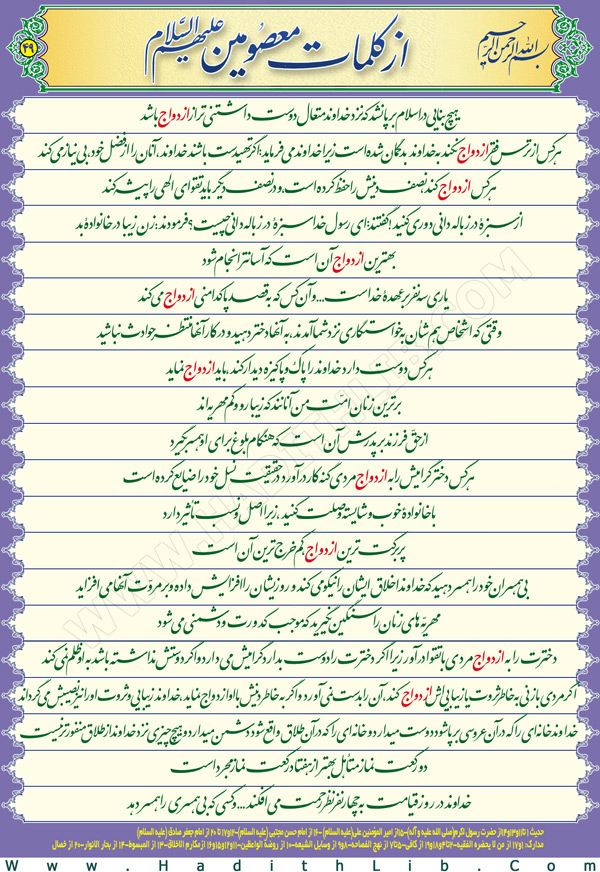 بسم الله الرحمن الرحیم
از کلمات معصومین علیهم السّلام
۴۹
هیچ بنایی در اسلام بر پا نشد که نزد خداوند متعال دوست داشتنی تر از ازدواج باشد
هرکس از ترس فقر ازدواج نکند به خداوند بدگمان شده است زیرا خداوند می فرماید: اگر تهیدست باشند خداوند، آنان را از فضل خود، بی نیاز می کند
هرکس ازدواج کند، نصف دینش را حفظ کرده است، و در نصف دیگر باید تقوای الهی را پیشه کند
از سبزۀ در زباله دانی دوری کنید! گفتند: ای رسول خدا سبزۀ در زباله دانی چیست؟ فرمودند: زن زیبا در خانوادۀ بد
بهترین ازدواج آن است که آسانتر انجام شود
یاری سه نفر بر عهدۀ خداست ... و آن کس که به قصد پاکدامنی ازدواج می کند
وقتی که اشخاص هم شأن به خواستگاری نزد شما آمدند، به آنها دختر دهید و در کار آنها منتظر حوادث نباشید
هرکس دوست دارد خداوند را پاک و پاکیزه دیدار کند، باید ازدواج نماید
برترین زنان امّت من آنانند که زیبا رو و کم مهریه اند
از حقّ فرزند بر پدرش آن است که هنگام بلوغ برای او همسر گیرد
هرکس دختر گرامیش را به ازدواج مردی گنه کار درآورد در حقیقت نسل خود را ضایع کرده است
با خانوادۀ خوب و شایسته وصلت کنید، زیرا اصل و نسب تأثیر دارد
پر برکت ترین ازدواج کم خرج ترین آن است
بی همسران خود را همسر دهید که خداوند اخلاق ایشان را نیکو می کند و روزیشان را افزایش داده و بر مروّت آنها می افزاید
مهریّه های زنان را سنگین نگیرید که موجب کدورت و دشمنی می شود
دخترت را به ازدواج مردی با تقوا درآور زیرا اگر دخترت را دوست بدارد گرامیش می دارد و اگر دوستش نداشته باشد به او ظلم نمی کند
اگر مردی با زنی به خاطر ثروت یا زیبایی اش ازدواج کند، آن را بدست نمی آورد و اگر به خاطر دینش با او ازدواج نماید، خداوند زیبایی و ثروت او را نیز نصیبش می گرداند
خداوند خانه ای را که در آن عروسی بر پا شود دوست میدارد و خانه ای را که در آن طلاق واقع شود دشمن میدارد و هیچ چیزی نزد خداوند از طلاق منفورتر نیست
دو رکعت نماز متأهل بهتر از هفتاد رکعت نماز مجرد است
خداوند در روز قیامت به چهار نفر نظر رحمت می افکند ... و کسی که بی همسری را همسر دهد
WWW.HADITHLIB.COM
www.HadithLib.com